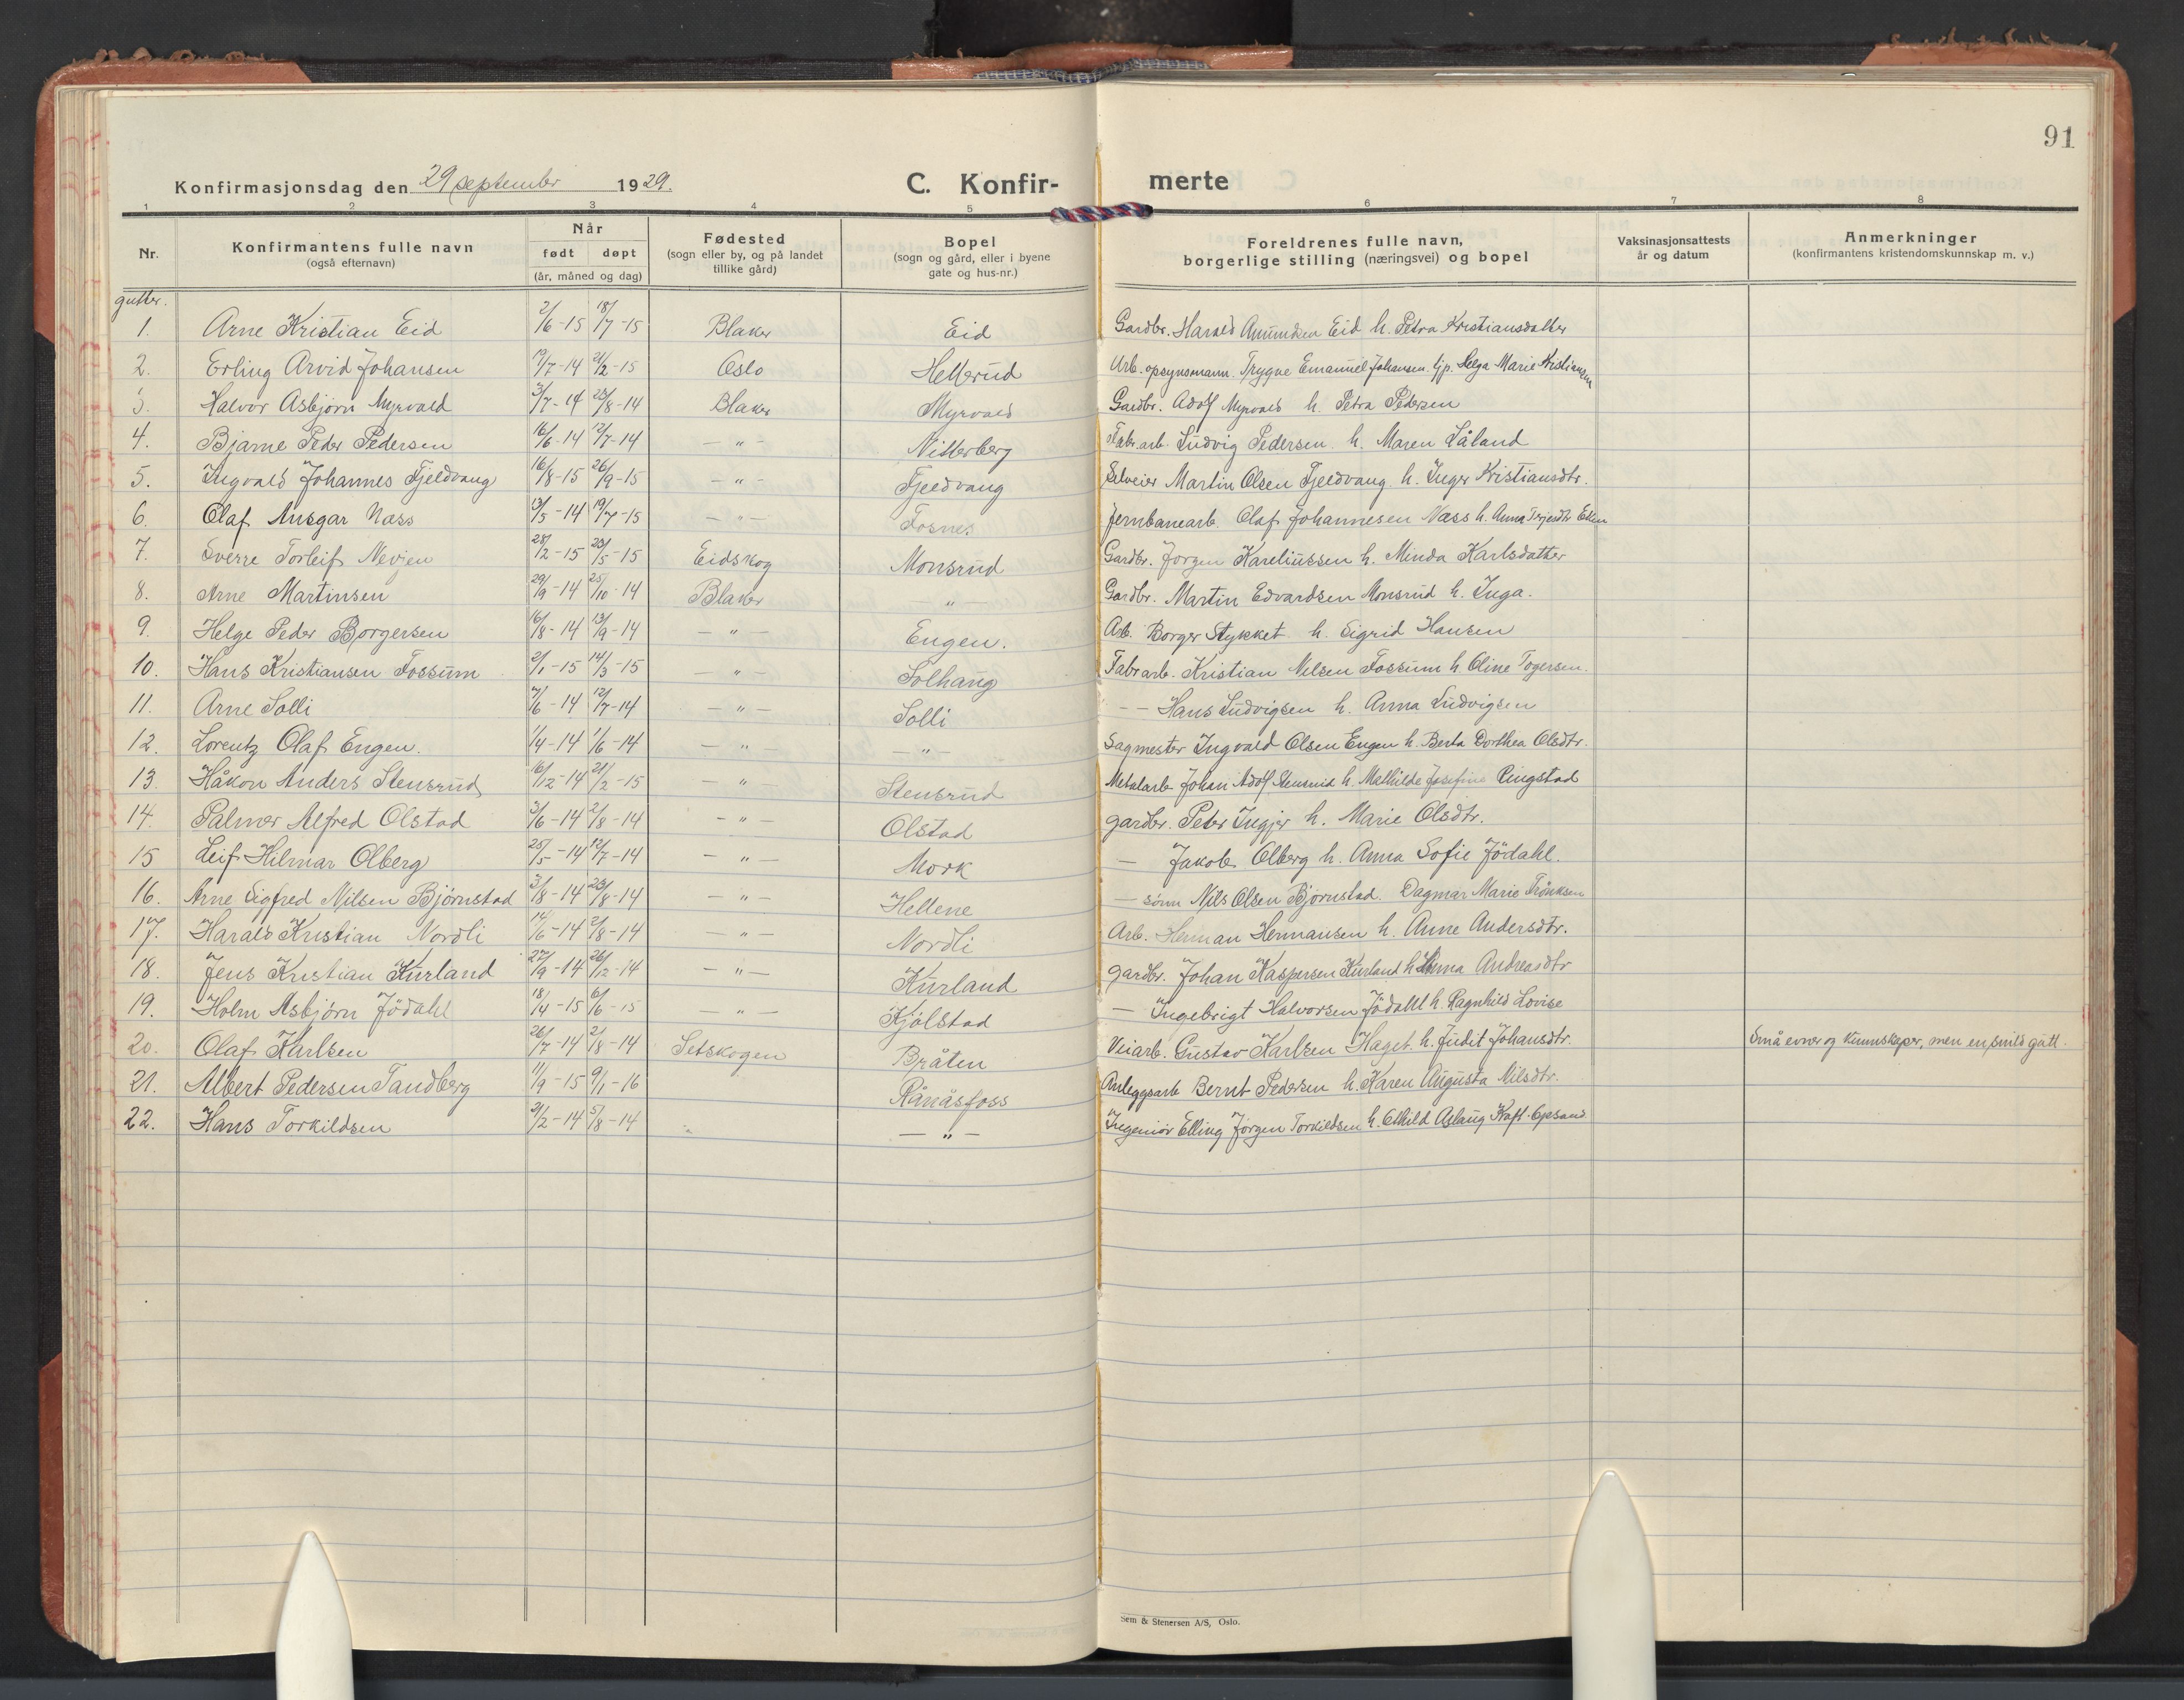 91
Konfirmasjonsdag den 29 september 1929. C. Konfir- merte
1 2 3 4 5 6 7 8
Nr. Konfirmantens fulle navn (også efternavn) Når født døpt (år, måned og dag) Fødested (sogn eller by, og på landet tillike gård) Bopel (sogn og gård, eller i byene gate og hus-nr.) Foreldrenes fulle navn, borgerlige stilling (næringsvei) og bopel Vaksinasjonsattests år og datum Anmerkninger (konfirmantens kristendomskunnskap m. v.)
gutter.
1. Arne Kristian Eid 2/6-15 18/7-15 Blaker Eid Gardbr. Harald Amundsen Eid h. Petra Kristiansdatter
2. Erling Arvid Johansen 19/7-14 21/2-15 Oslo Hellerud Arb. opsynsmann. Trygve Emanuel Johansen. Gp. Helga Marie Kristiansen
3. Halvor Asbjørn Myrvald 3/7-14 23/8-14 Blaker Myrvald Gardbr. Adolf Myrvald h. Petra Pedersen
4. Bjarne Peder Pedersen 16/6-14 12/7-14 — " — Nitterberg Fabr.arb. Ludvig Pedersen h. Maren Låland
5. Ingvald Johannes Fjeldvang 16/8-15 26/9-15 — " — Fjeldvang Selveier Martin Olsen Fjeldvang. h. Inger Kristiansdtr.
6. Olaf Ansgar Næss 13/5-14 19/7-15 — " — Fosnes Jernbanearb. Olaf Johannesen Næss h. Anna Terjesdtr
7. Sverre Torleif Nevjen 28/2-15 23/5-15 Eidskog Monsrud Gardbr. Jørgen Kareliussen h. Minda Karlsdatter
8. Arne Martinsen 29/9-14 25/10-14 Blaker " — Gardbr. Martin Edvardsen Monsrud h. Inga.
9. Helge Peder Borgersen 16/8-14 13/9-14 — " — Engen. Arb. Borger Stykket h. Sigrid Hansen
10. Hans Kristiansen Fossum 2/1-15 14/3-15 — " — Solhaug Fabrarb. Kristian Nilsen Fossum h. Oline Togersen.
11. Arne Solli 7/6-14 12/7-14 — " — Solli — — Hans Ludvigsen h. Anna Ludvigsen
12. Lorentz Olaf Engen. 1/4-14 1/6-14 — " — — " — Sagmester Ingvald Olsen Engen h. Berta Dorthea Olsdtr.
13. Håkon Anders Stensrud 16/12-14 21/2-15 — " Stensrud Metalarb. Johan Adolf Stensrud h. Mathilde Josefine Ringstad
14. Palmer Alfred Olstad 3/6-14 2/8-14 — " — Olstad gardbr. Peter Ingjer h. Marie Olsdtr.
15 Leif Hilmar Olberg 25/5-14 12/7-14 — " — Mork — Jakob Olberg h. Anna Sofie Jødahl.
16. Arne Sigfred Nilsen Bjørnstad 3/8-14 23/8-14 — " — Hellene — sønn Nils Olsen Bjørnstad. Dagmar Marie
17. Harald Kristian Nordli 14/6-14 2/8-14 — " — Nordli Arb. Herman Hermansen h. Anne Andersdtr.
18. Jens Kristian Kurland 27/9-14 26/12-14 — " — Kurland gardbr. Johan Kaspersen Kurland h. Anna Andreasdtr
19. Holm Asbjørn Jødahl 18/4-15 6/6-15 — " — Kjølstad — Ingebrigt Halvorsen Jødahl h. Ragnhild Lovise
20. Olaf Karlsen 26/7-14 2/8-14 Setskogen Bråten Veiarb. Gustav Karlsen Haget. h. Judit Johansdtr. Små evner og kunnskaper, men en snild gutt.
21. Albert Pedersen Tandberg 11/9-15 9/1-16 Rånåsfoss Anleggsarb Bernt Pedersen h. Karen Augusta Nilsdtr.
22. Hans Torkildsen 21/2-14 5/8-14 " — " — Ingeniør Elling Jørgen Torkildsen h. Aslaug Kraft-Opsand
Sem & Stenersen A/S, Oslo.